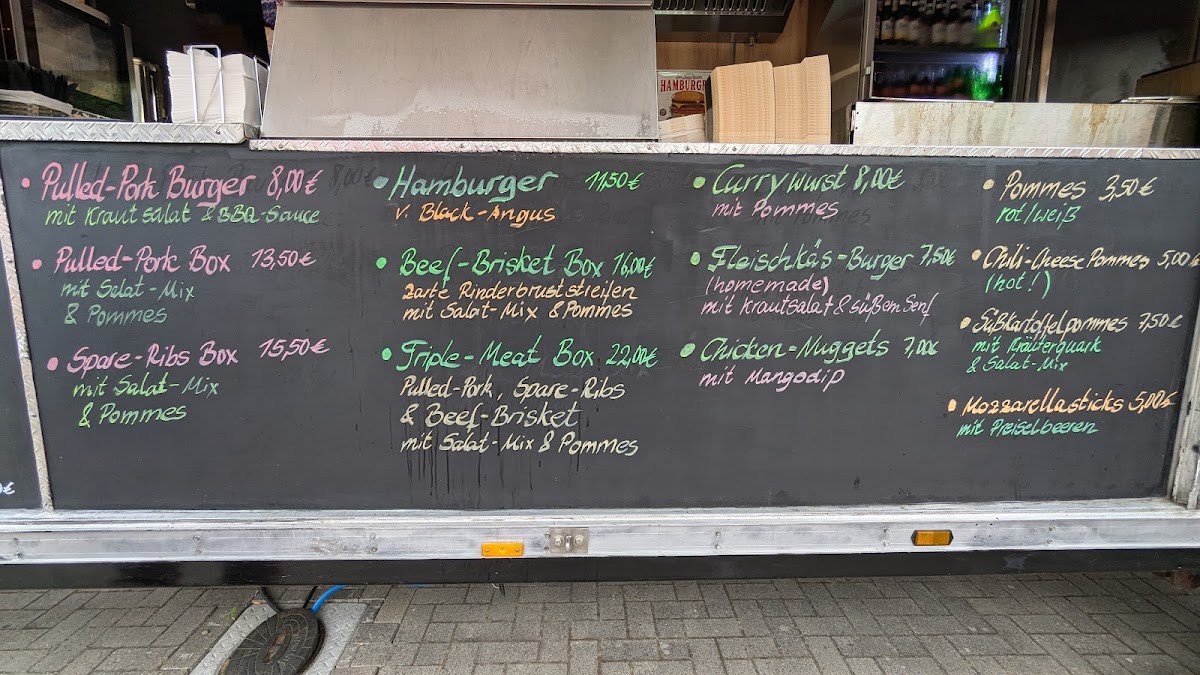 HAMBURGER
• Pulled-Pork Burger 8,00€
mit Krautsalat & BBQ-Sauce
• Pulled-Pork Box 13,50€
mit Salat-Mix
& Pommes
• Spare-Ribs Box 15,50€
mit Salat-Mix
& Pommes
• Hamburger 11,50€
v. Black-Angus
• Beef-Brisket Box 16,00€
zarte Rinderbruststreifen
mit Salat-Mix & Pommes
• Triple-Meat Box 22,00€
Pulled-Pork, Spare-Ribs
& Beef-Brisket
mit Salat-Mix & Pommes
• Currywurst 8,00€
mit Pommes
• Fleischkäs-Burger 7,50€
(homemade)
mit Krautsalat & süßem Senf
• Chicken-Nuggets 7,00€
mit Mangodip
• Pommes 3,50€
rot/weiß
• Chili-Cheese Pommes 5,00€
(hot!)
• Süßkartoffelpommes 7,50€
mit Kräuterquark
& Salat-Mix
• Mozzarellasticks 5,00€
mit Preiselbeeren